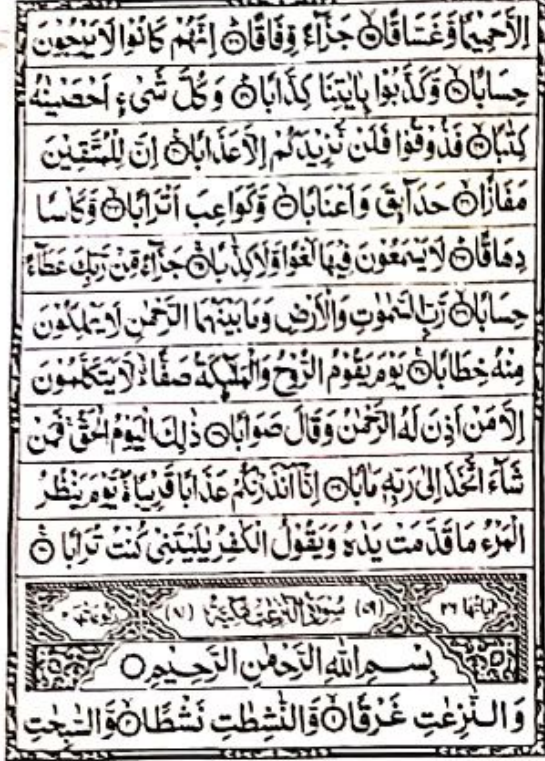 اِلَّا حَمِيْمًا وَّغَسَّاقًا ۝ جَزَآءً وِّفَاقًا ۝ اِنَّهُمْ كَانُوْا لَا يَرْجُوْنَ
حِسَابًا ۝ وَّكَذَّبُوْا بِاٰيٰتِنَا كِذَّابًا ۝ وَكُلَّ شَیْءٍ اَحْصَيْنٰهُ
كِتٰبًا ۝ فَذُوْقُوْا فَلَنْ نَّزِيْدَكُمْ اِلَّا عَذَابًا ۝ اِنَّ لِلْمُتَّقِيْنَ
مَفَازًا ۝ حَدَآئِقَ وَاَعْنَابًا ۝ وَّكَوَاعِبَ اَتْرَابًا ۝ وَّكَاْسًا
دِهَاقًا ۝ لَا يَسْمَعُوْنَ فِيْهَا لَغْوًا وَّلَا كِذّٰبًا ۝ جَزَآءً مِّنْ رَّبِّكَ عَطَآءً
حِسَابًا ۝ رَّبِّ السَّمٰوٰتِ وَالْاَرْضِ وَمَا بَيْنَهُمَا الرَّحْمٰنِ لَا يَمْلِكُوْنَ
مِنْهُ خِطَابًا ۝ يَوْمَ يَقُوْمُ الرُّوْحُ وَالْمَلٰٓئِكَةُ صَفًّا لَّا يَتَكَلَّمُوْنَ
اِلَّا مَنْ اَذِنَ لَهُ الرَّحْمٰنُ وَقَالَ صَوَابًا ۝ ذٰلِكَ الْيَوْمُ الْحَقُّ فَمَنْ
شَآءَ اتَّخَذَ اِلٰى رَبِّهٖ مَاٰبًا ۝ اِنَّآ اَنْذَرْنٰكُمْ عَذَابًا قَرِيْبًا يَّوْمَ يَنْظُرُ
الْمَرْءُ مَا قَدَّمَتْ يَدٰهُ وَيَقُوْلُ الْكٰفِرُ يٰلَيْتَنِیْ كُنْتُ تُرٰبًا ۝
اٰيَاتُهَا ٤٦ (٧٩) سُوْرَةُ النّٰزِعٰتِ مَكِّيَّةٌ (٨١) رُكُوْعَاتُهَا ٢
بِسْمِ اللّٰهِ الرَّحْمٰنِ الرَّحِيْمِ ۝
وَالنّٰزِعٰتِ غَرْقًا ۝ وَّالنّٰشِطٰتِ نَشْطًا ۝ وَّالسّٰبِحٰتِ